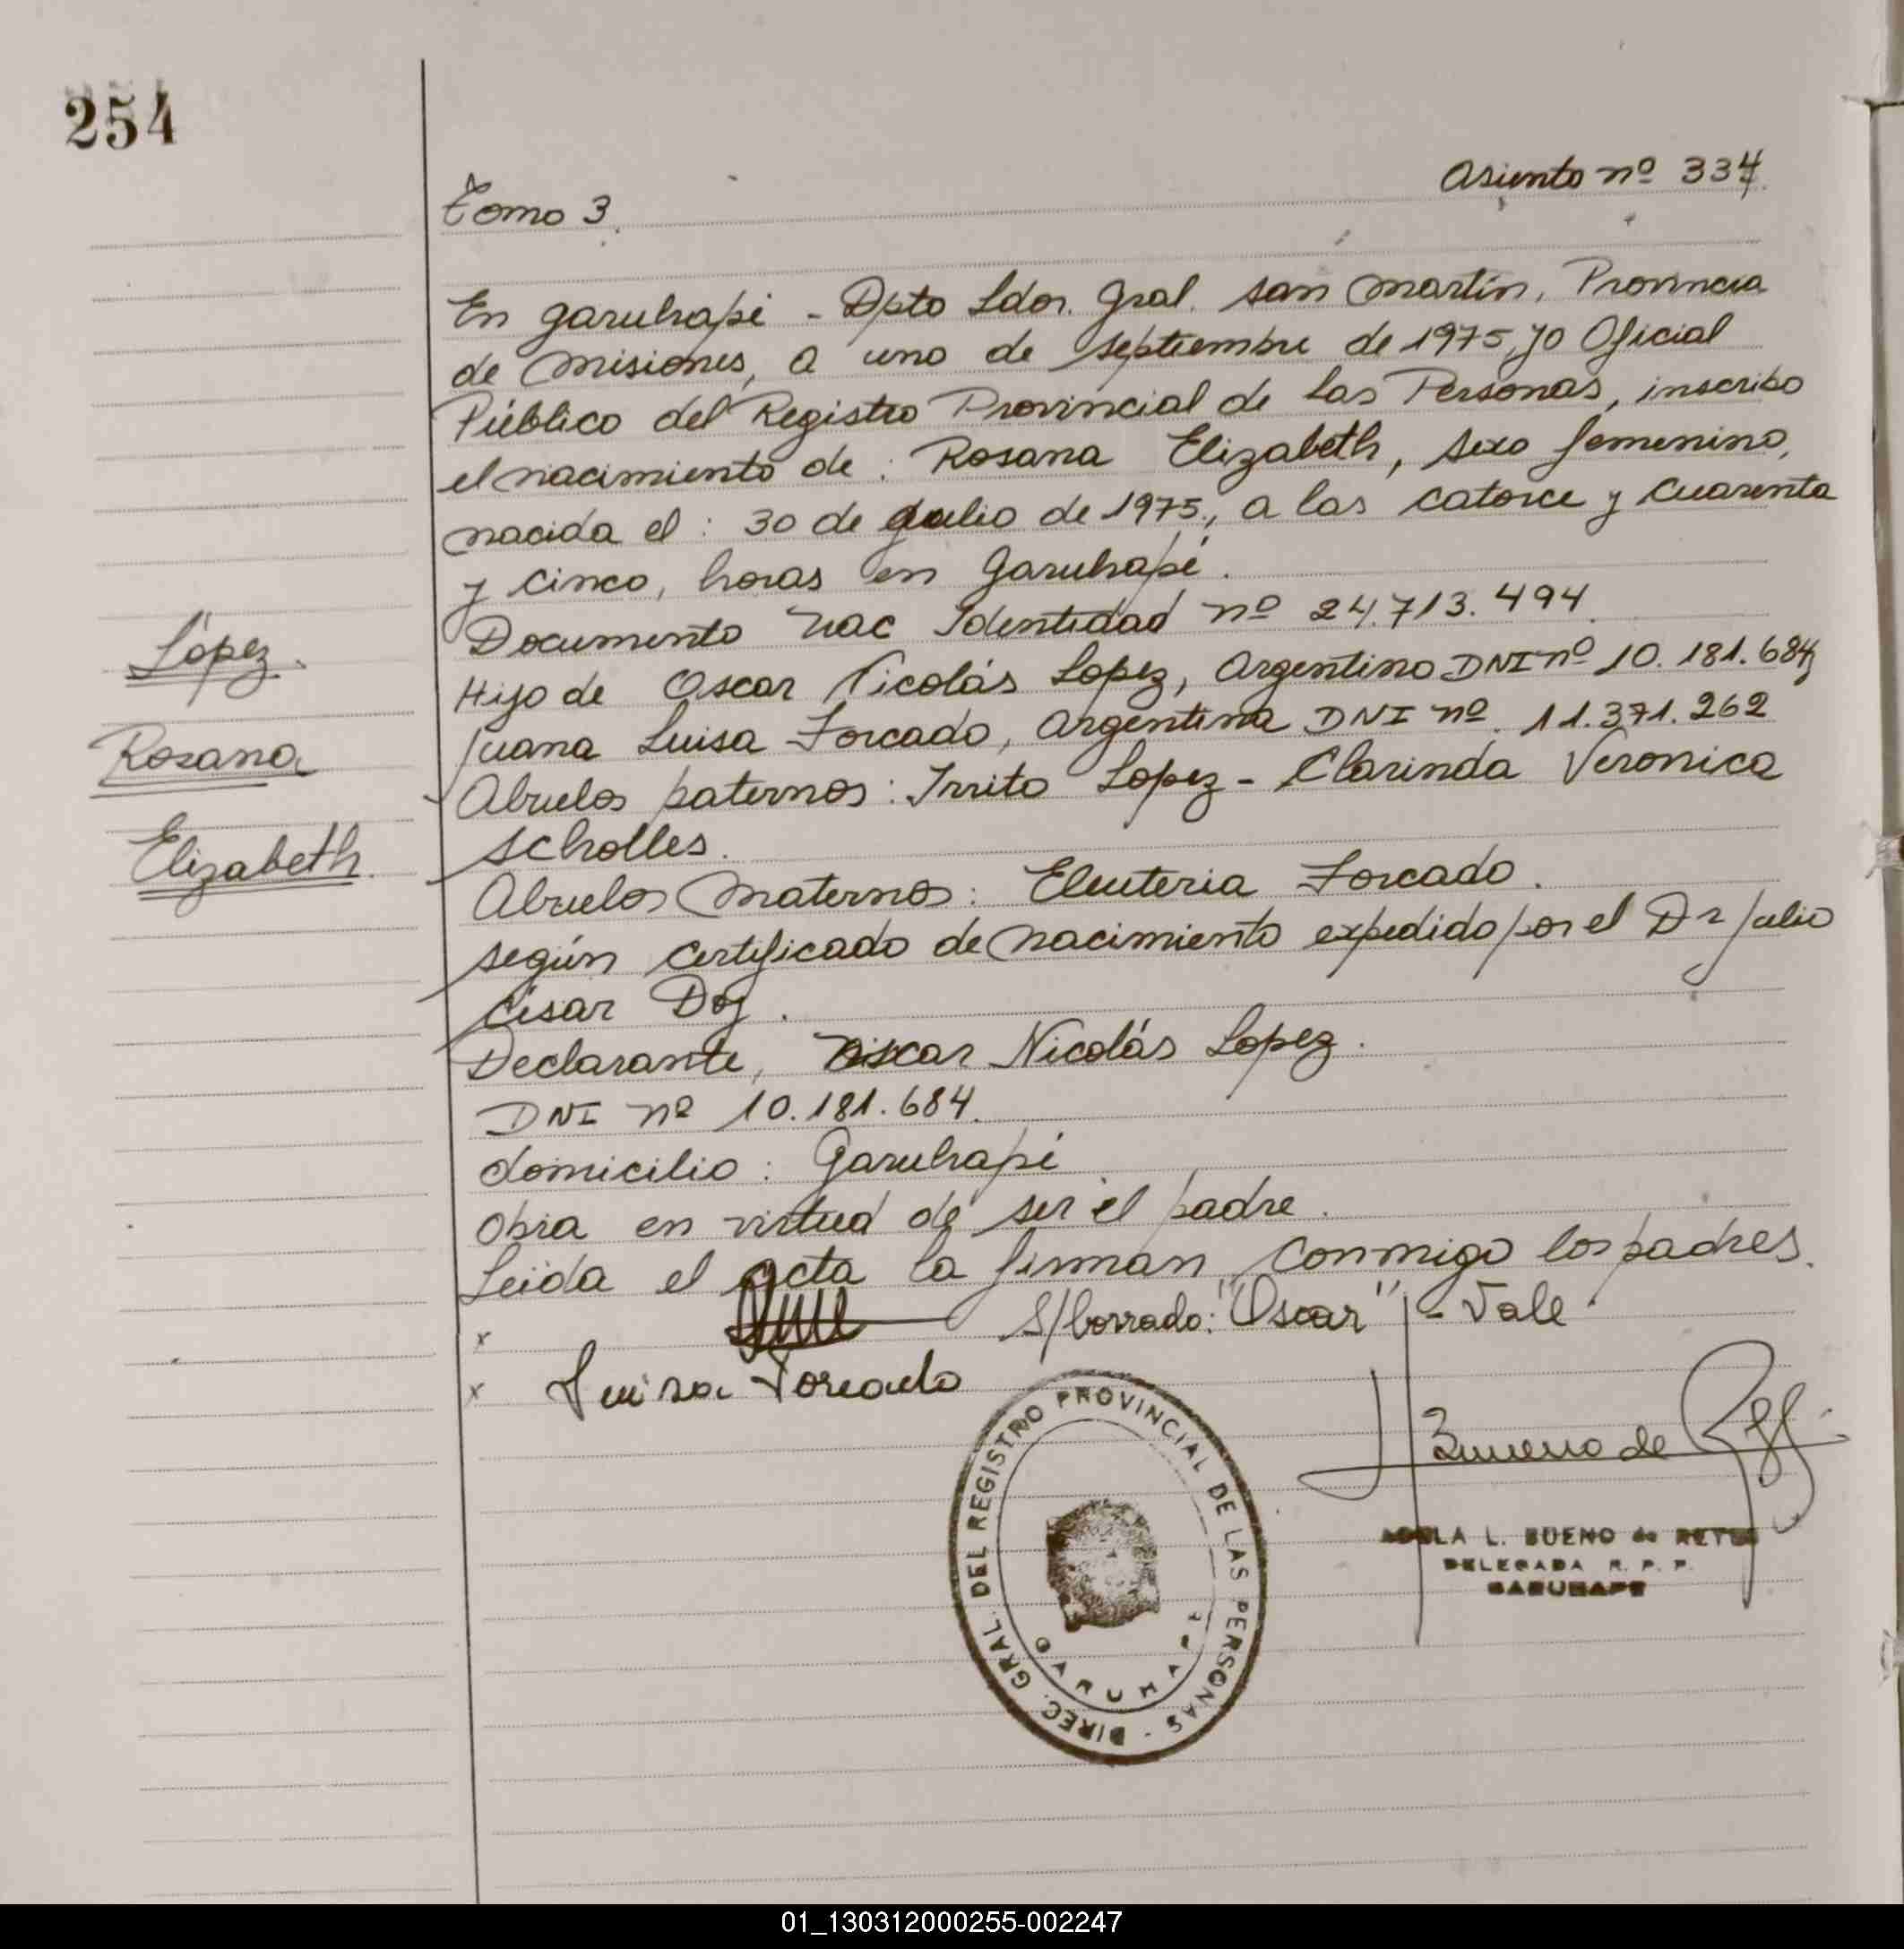 254
Asiento nº 334.
Tomo 3.
En Garuhapé - Dpto Ldor. Gral. San Martín, Provincia
de Misiones, a uno de septiembre de 1975, yo Oficial
Público del Registro Provincial de las Personas, inscribo
el nacimiento de: Rosana Elizabeth, sexo femenino,
nacida el: 30 de Julio de 1975, a las catorce y cuarenta
y cinco, horas en Garuhapé.
Documento Nac Identidad nº 24.713.494.
López.
Hijo de Oscar Nicolás Lopez, Argentino DNI nº 10.181.684
Juana Luisa Forcado, Argentina DNI nº 11.371.262
Rosana
Abuelos paternos: Irrito Lopez - Clarinda Veronica
Scholles.
Elizabeth.
Abuelos Maternos: Eleuteria Forcado.
según certificado de nacimiento expedido por el Dr Julio
César Doj.
Declarante, Oscar Nicolás Lopez.
DNI nº 10.181.684.
domicilio: Garuhapé
Obra en virtud de ser el padre.
Leída el acta la firman conmigo los padres.
x S/borrado: "Oscar" - Vale
x Luisa Forcado
DIREC. GRAL. DEL REGISTRO PROVINCIAL DE LAS PERSONAS -
GARUHAPE
ADELA L. BUENO de
DELEGADA R. P. P.
GARUHAPE
01_130312000255-002247